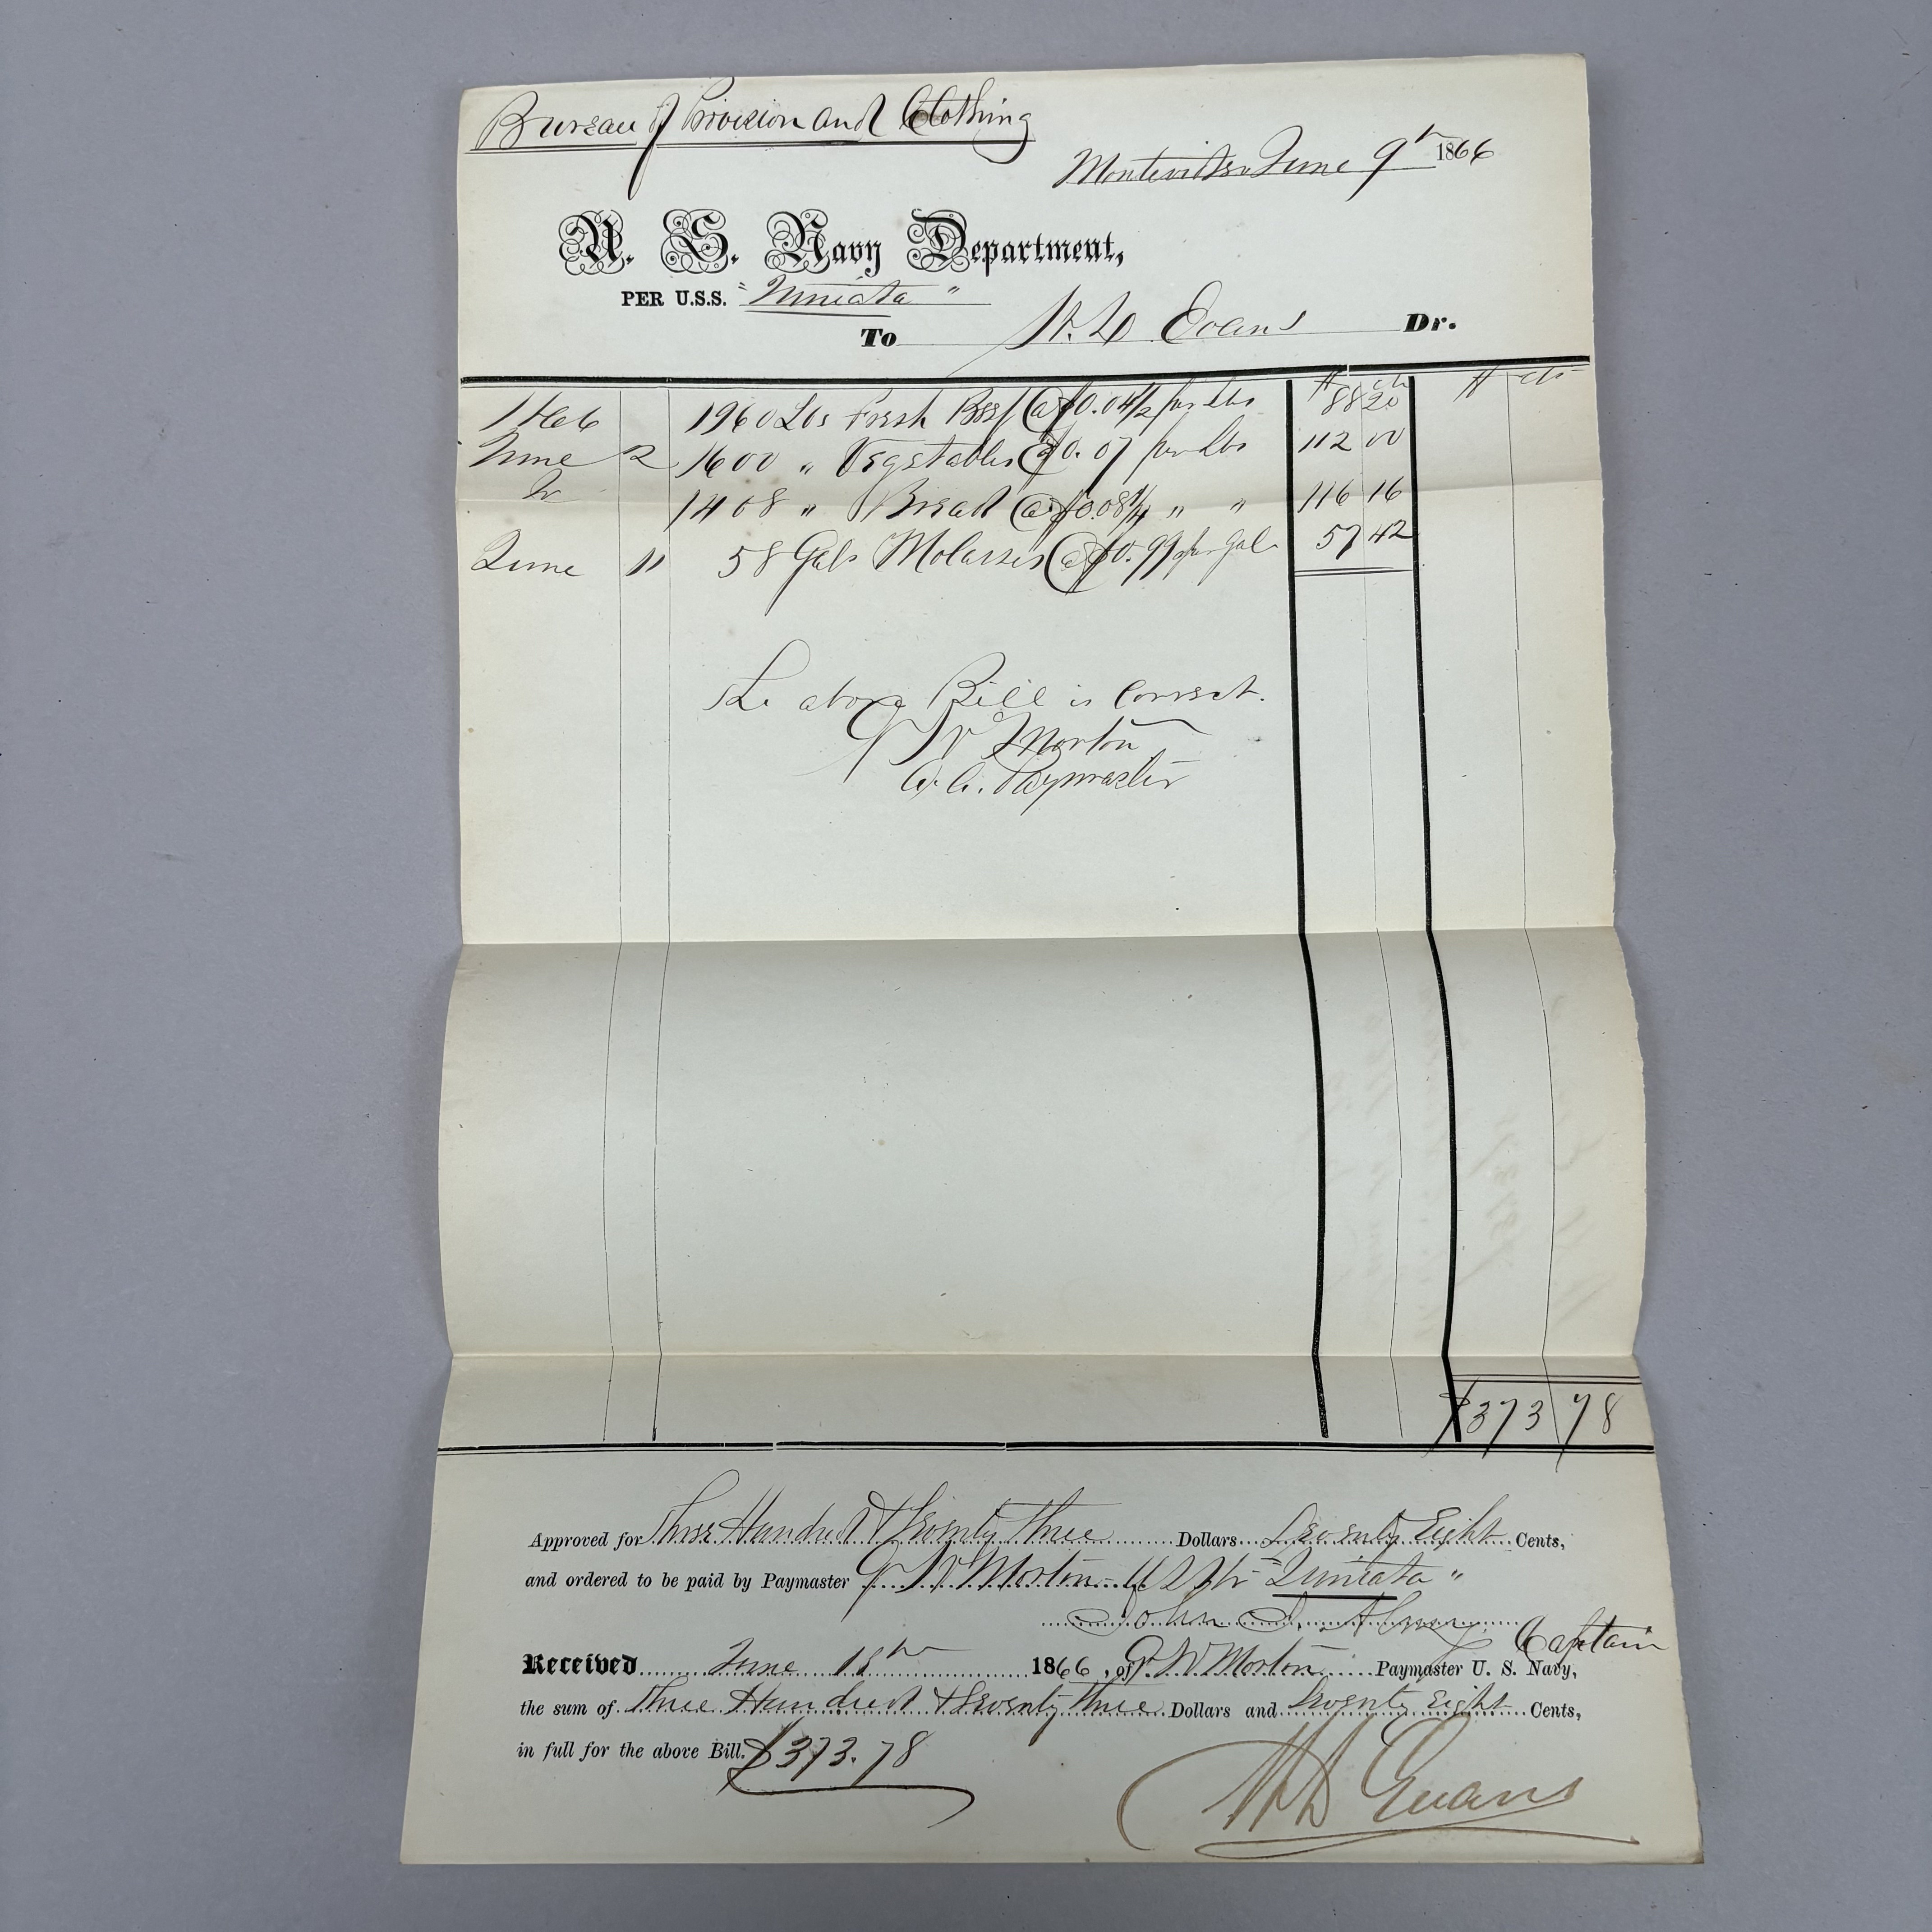 Bureau of Provision and Clothing
Montevideo June 9th 1866
U. S. Navy Department,
PER U.S.S. "Juniata"
To H. D Evans Dr.
$ cts $ cts
1866 1960 Lbs Fresh Beef @ $0.04½ per Lbs 88 20
June 2 1600 " Vegetables @ $0.07 per Lbs 112 00
1408 " Bread @ $0.08¼ " " 116 16
June 11 58 Gals Molasses @ $0.99 per Gal 57 42
The above Bill is Correct.
G W Morton
A. A. Paymaster
$373 78
Approved for Three Hundred & Seventy Three Dollars Seventy Eight Cents,
and ordered to be paid by Paymaster G W Morton USStr "Juniata"
John J. Almy Captain
Received June 18th 1866, of G W Morton Paymaster U. S. Navy,
the sum of Three Hundred & Seventy Three Dollars and Seventy Eight Cents,
in full for the above Bill. $373.78
H D Evans